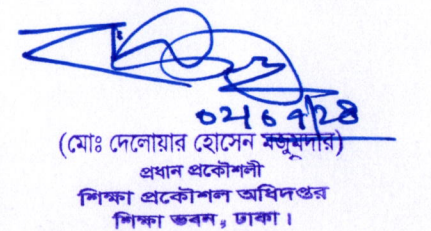 ০২/০৭/২৪
(মোঃ দেলোয়ার হোসেন মজুমদার)
প্রধান প্রকৌশলী
শিক্ষা প্রকৌশল অধিদপ্তর
শিক্ষা ভবন, ঢাকা।